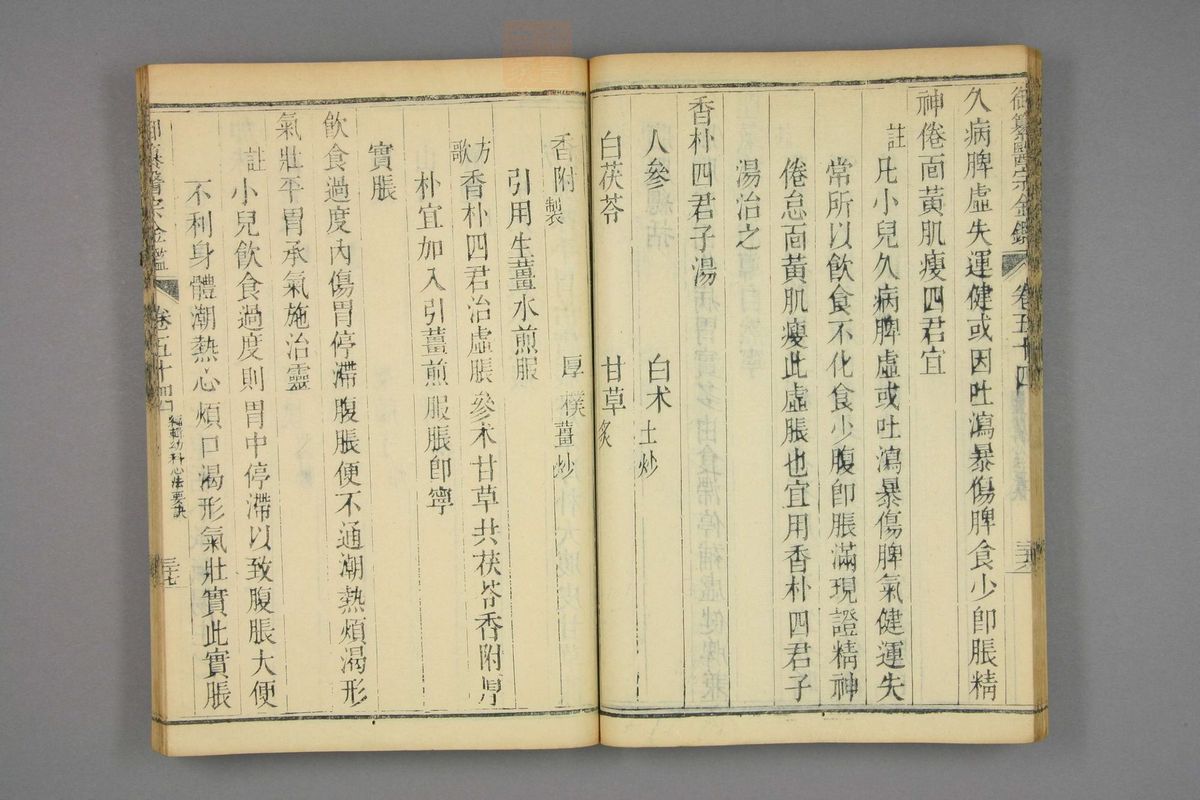 御纂醫宗金鑑 卷五十四 三十六
久病脾虛失運健或因吐瀉暴傷脾食少卽脹精
神倦面黃肌瘦四君宜
註凡小兒久病脾虛或吐瀉暴傷脾氣健運失
常所以飲食不化食少腹卽脹滿現證精神
倦怠面黃肌瘦此虛脹也宜用香朴四君子
湯治之
香朴四君子湯
人參 白术土炒
白茯苓 甘草炙
香附製 厚樸薑炒
引用生薑水煎服
方歌香朴四君治虛脹參术甘草共茯苓香附厚
朴宜加入引薑煎服脹卽寧
實脹
飲食過度內傷胃停滯腹脹便不通潮熱煩渴形
氣壯平胃承氣施治靈
註小兒飲食過度則胃中停滯以致腹脹大便
不利身體潮熱心煩口渴形氣壯實此實脹
御纂醫宗金鑑 卷五十四 編輯幼科心法要訣 三十七